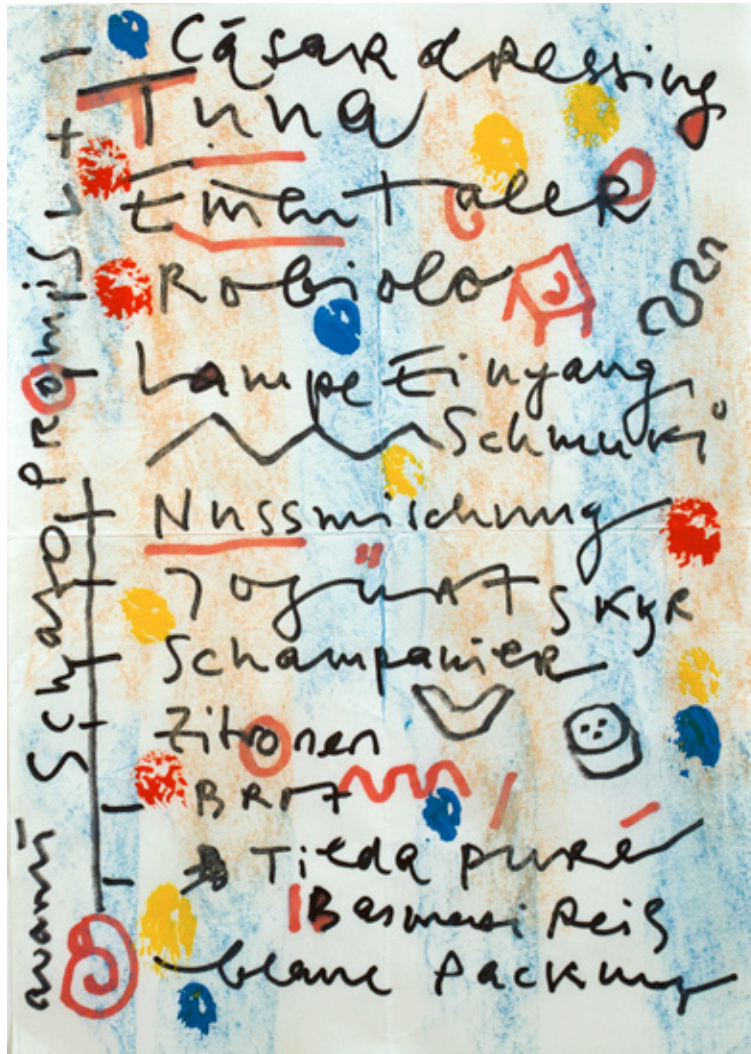 Cäsardressing
Tuna
Ementaler
Robiolo
Lampe Eingang
Schmuki
Nussmischung
Jogurt Skyr
Schampanier
Zitronen
Brot
Tilda puré
Basmati Reis
blaue Packung
Schaso Promis